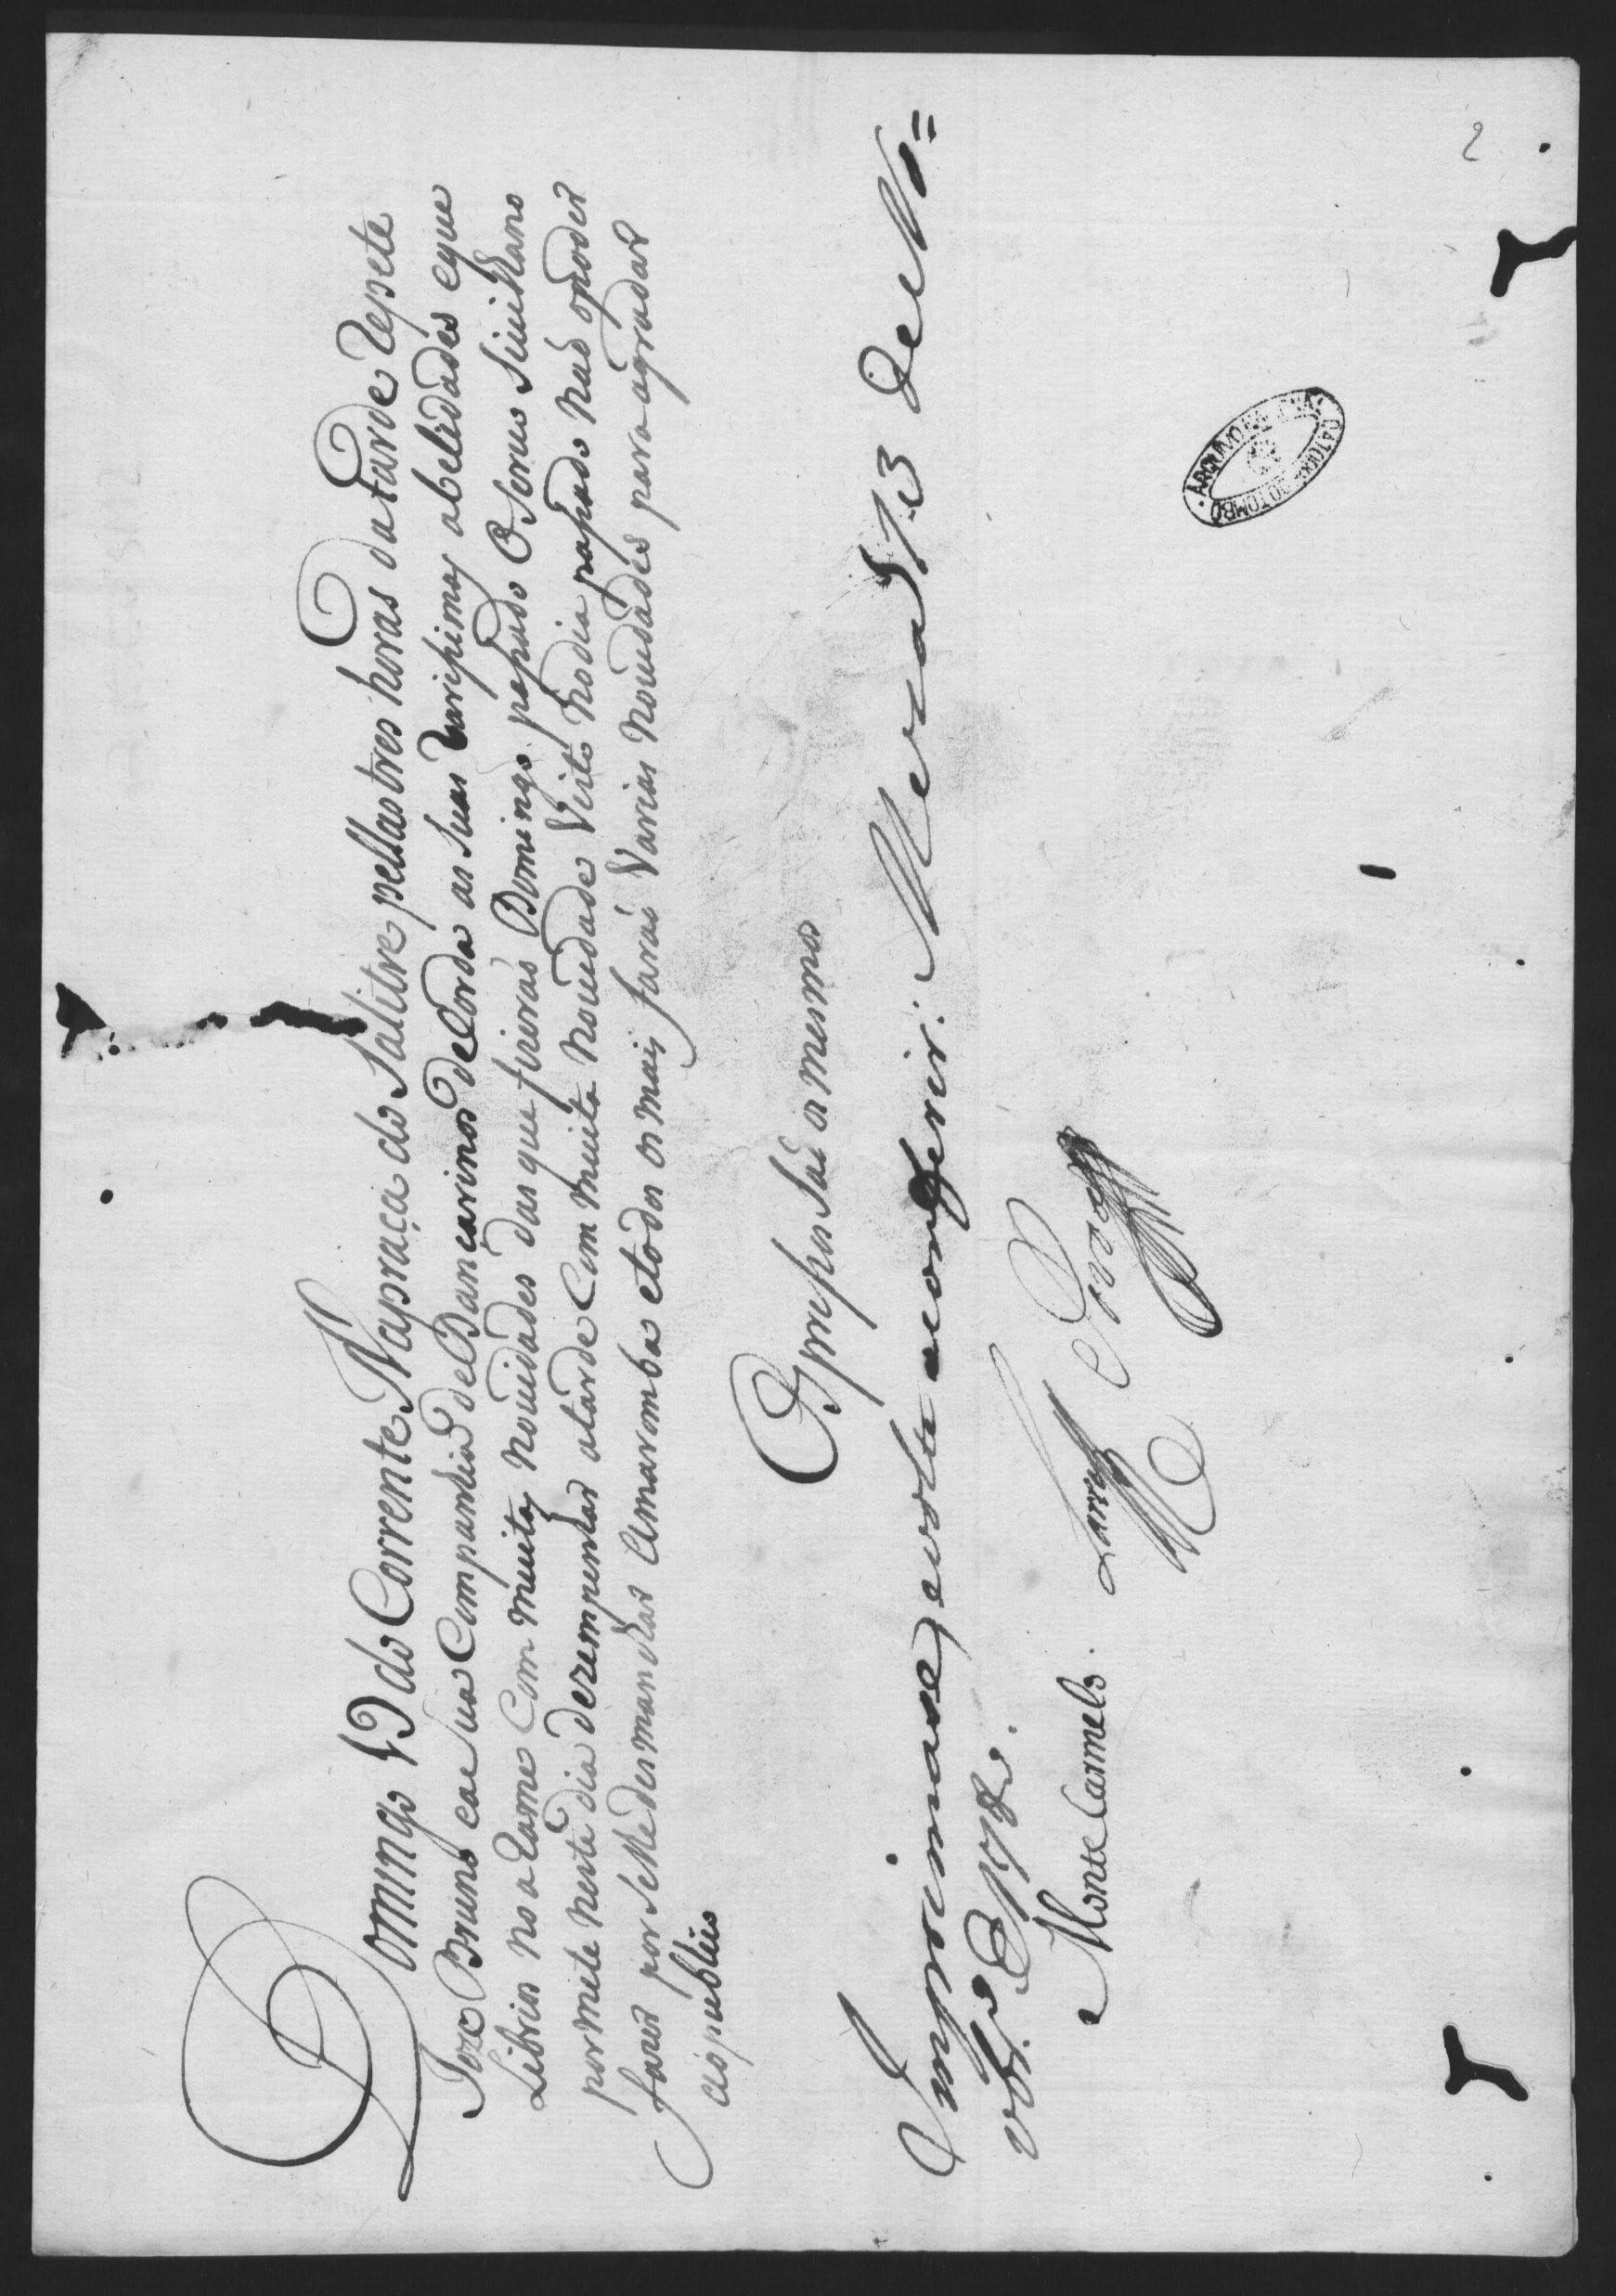 Domingo 15 do Corrente Napraça do Salitre pellas tres horas da tarde Repete
Joze Bruno ea Sua Companhia de Dançarinos de Corda as Suas rarissimas abelidades eque
Sebrio no arame Com muitas nouidades das que fizerão Domingo passado O Serue Siuilhano
por mete neste dia dezempenhar atarde Com muita nouidade Visto no dia passado não opoder
fazer por se lhe desmanchar amaromba etodos os mais farão Varias nouidades para agradar
ao publico
Os pressos São os mesmos
Imprimase, evolte aconferir. Meza 13 de No=
vbr.o D 178
Monte Carmelo.
2
ARQUIVO NAC DA TORRE DO TOMBO